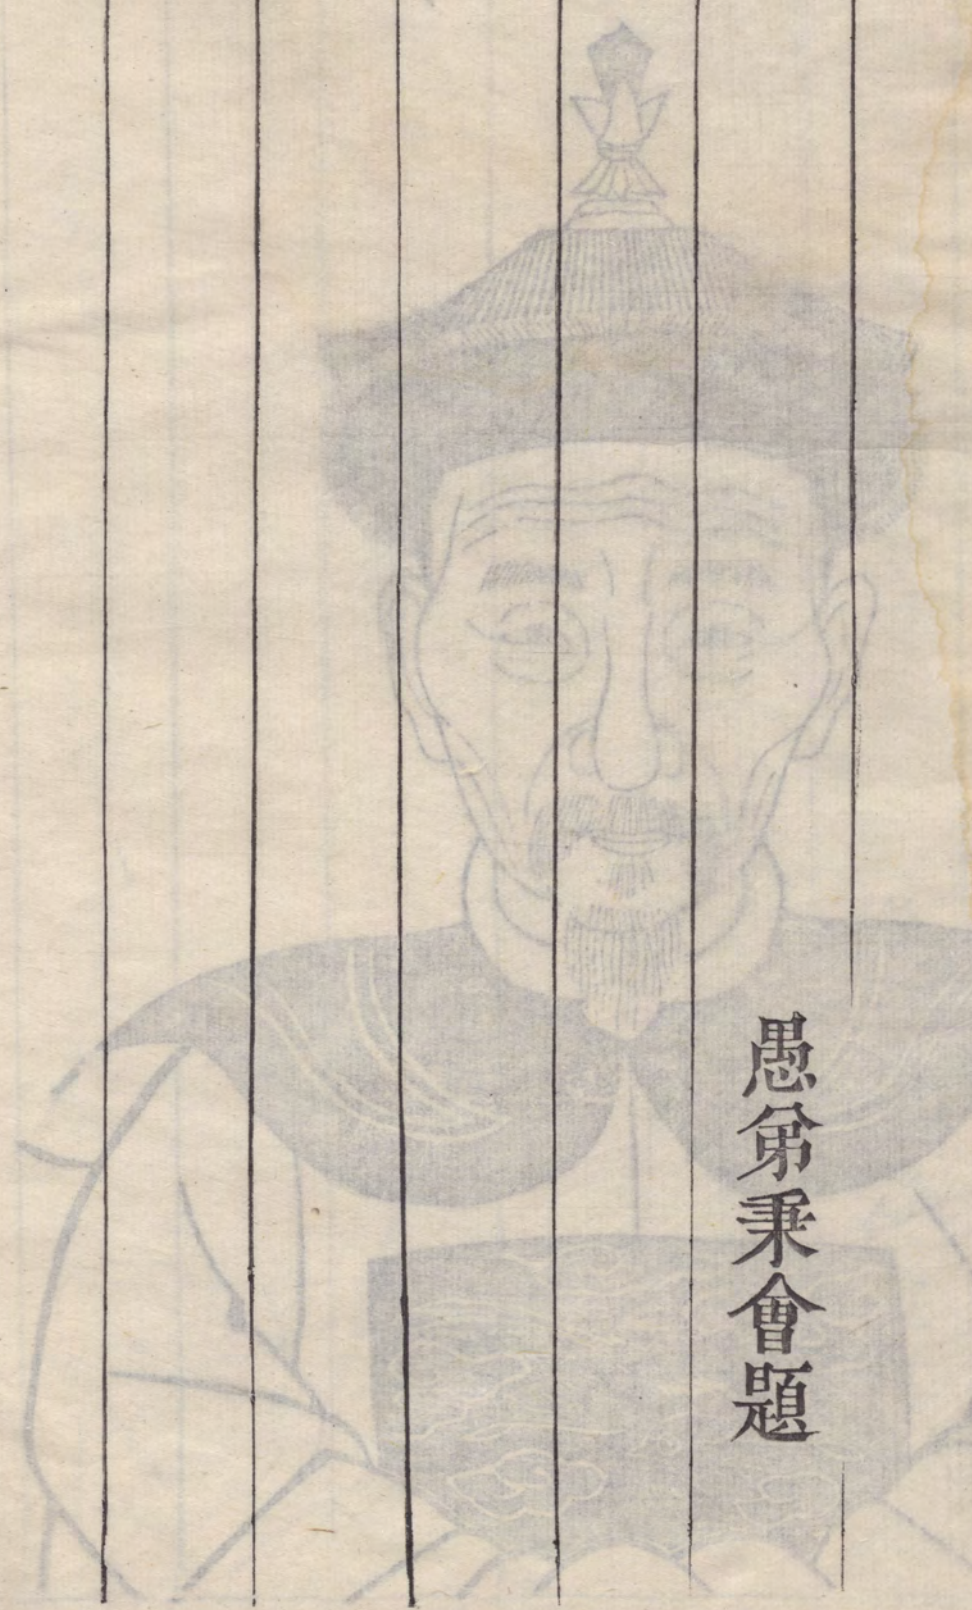 愚弟秉會題